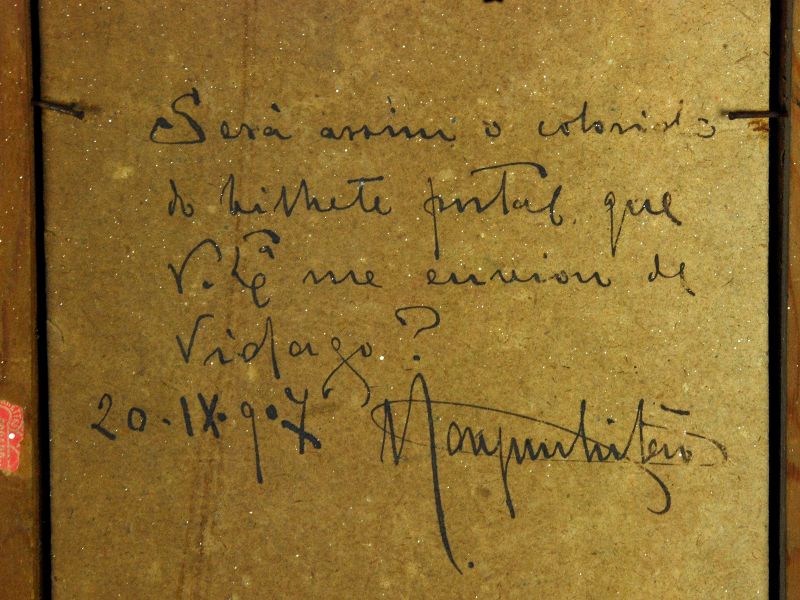 Será assim o colorido
do bilhete postal que
V. Exª me enviou de
Vidago?
20·IX·907